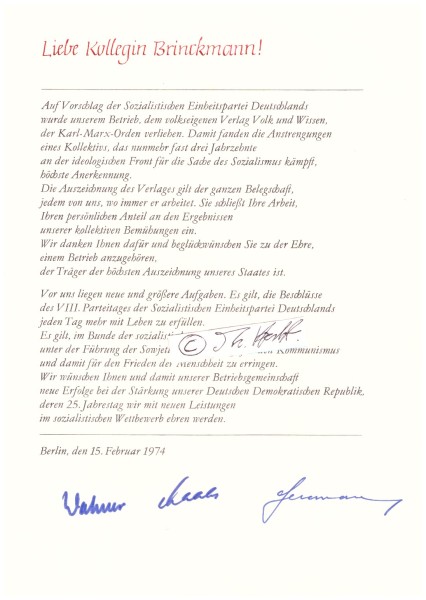 Liebe Kollegin Brinckmann!
Auf Vorschlag der Sozialistischen Einheitspartei Deutschlands
wurde unserem Betrieb, dem volkseigenen Verlag Volk und Wissen,
der Karl-Marx-Orden verliehen. Damit fanden die Anstrengungen
eines Kollektivs, das nunmehr fast drei Jahrzehnte
an der ideologischen Front für die Sache des Sozialismus kämpft,
höchste Anerkennung.
Die Auszeichnung des Verlages gilt der ganzen Belegschaft,
jedem von uns, wo immer er arbeitet. Sie schließt Ihre Arbeit,
Ihren persönlichen Anteil an den Ergebnissen
unserer kollektiven Bemühungen ein.
Wir danken Ihnen dafür und beglückwünschen Sie zu der Ehre,
einem Betrieb anzugehören,
der Träger der höchsten Auszeichnung unseres Staates ist.
Vor uns liegen neue und größere Aufgaben. Es gilt, die Beschlüsse
des VIII. Parteitages der Sozialistischen Einheitspartei Deutschlands
jeden Tag mehr mit Leben zu erfüllen.
Es gilt, im Bunde der
unter der Führung der Kommunismus
und damit für den Frieden der Menschheit zu erringen.
Wir wünschen Ihnen und damit unserer Betriebsgemeinschaft
neue Erfolge bei der Stärkung unserer Deutschen Demokratischen Republik,
deren 25. Jahrestag wir mit neuen Leistungen
im sozialistischen Wettbewerb ehren werden.
Berlin, den 15. Februar 1974